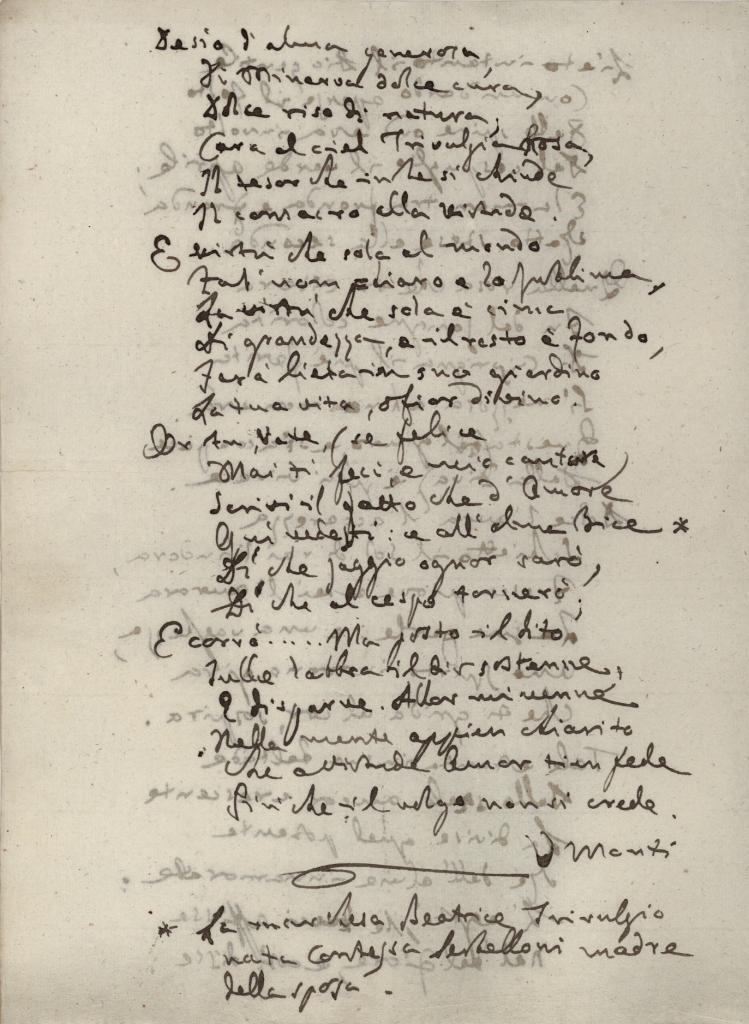 Desio d'alma generosa,
Di Minerva dolce cura,
Dolce riso di natura,
Cara al ciel Trivulzia Rosa,
Il tesor che in te si chiude
Il consacro alla virtude.
E virtù che sola al mondo
Fa l'uom chiaro e lo sublima,
La virtù che sola è cima
Di grandezza, e il resto è fondo,
Farà lieta in suo giardino
La tua vita, o fior divino.
Or tu, Vate, (se felice
Mai ti feci, e mio cantore)
Scrivi il fatto che d'Amore
Qui vedesti: e all'alma Bice *
Di' che saggio ognor sarò,
Di' che al cespo tornerò;
E corrò..... Ma posto il dito
Sulle labbra il dir sostenne,
E disparve. Allor mi venne
Nella mente appien chiarito
Che a virtude Amor tien fede
Più che il volgo non si crede.
V Monti
* La marchesa Beatrice Trivulzio
nata Contessa Serbelloni madre
della sposa.